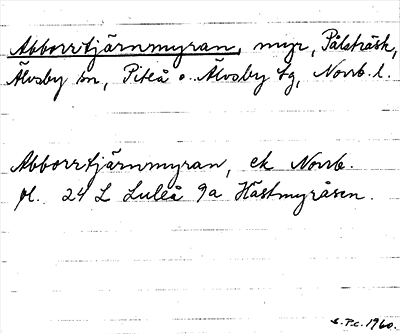 Abborrtjärnmyran, myr, Pålsträsk,
Älvsby sn, Piteå o. Älvsby tg, Norrb. l.
Abborrtjärnmyran, ek Norrb.
fl. 24 L Luleå 9a Hästmyråsen.
S.P.c. 1960.